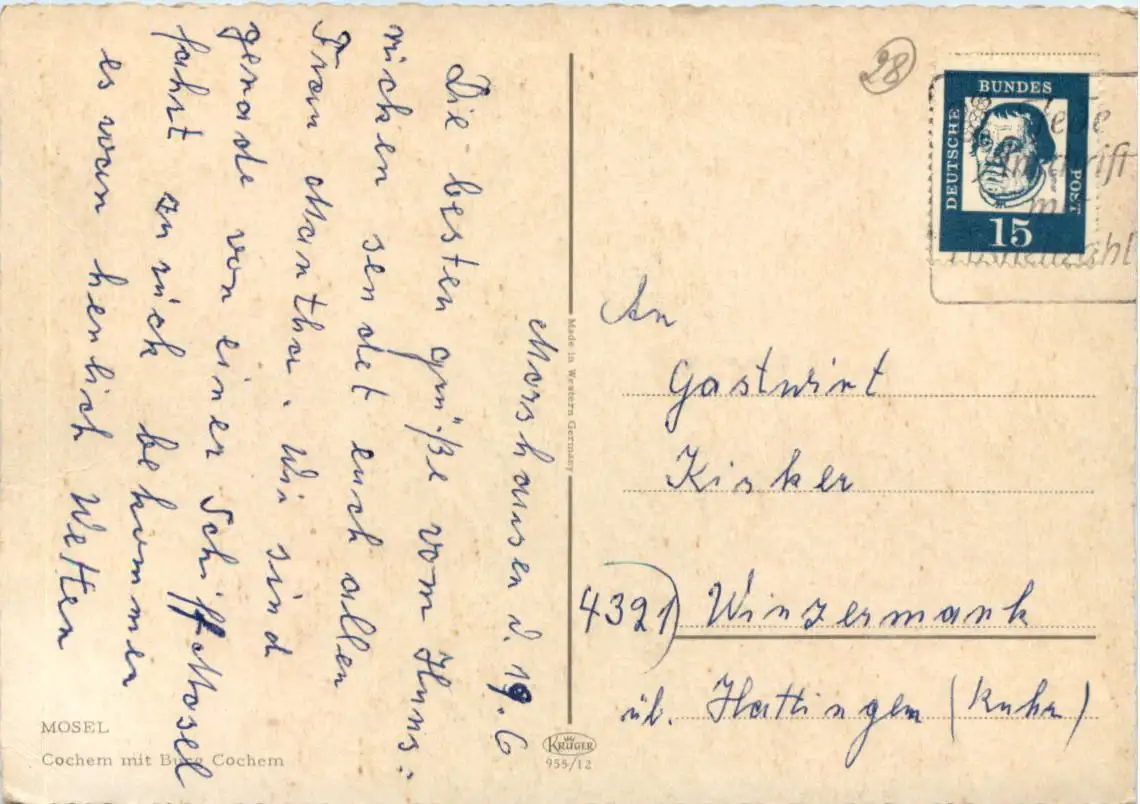 Morshausen d. 19.6
Die besten grüße vom Huns:
rücken sendet euch allen
Frau Martha. Wir sind
gerade von einer Schiff Mosel
fahrt zurück bekommen
es war herrlich Wetter
MOSEL
Cochem mit Burg Cochem
Made in Western Germany
KRÜGER
955/12
28
DEUTSCHE BUNDES POST
15
Jede
Anschrift
mit
An
Gastwirt
Kisker
4321) Winzermark
üb. Hattingen (Ruhr)